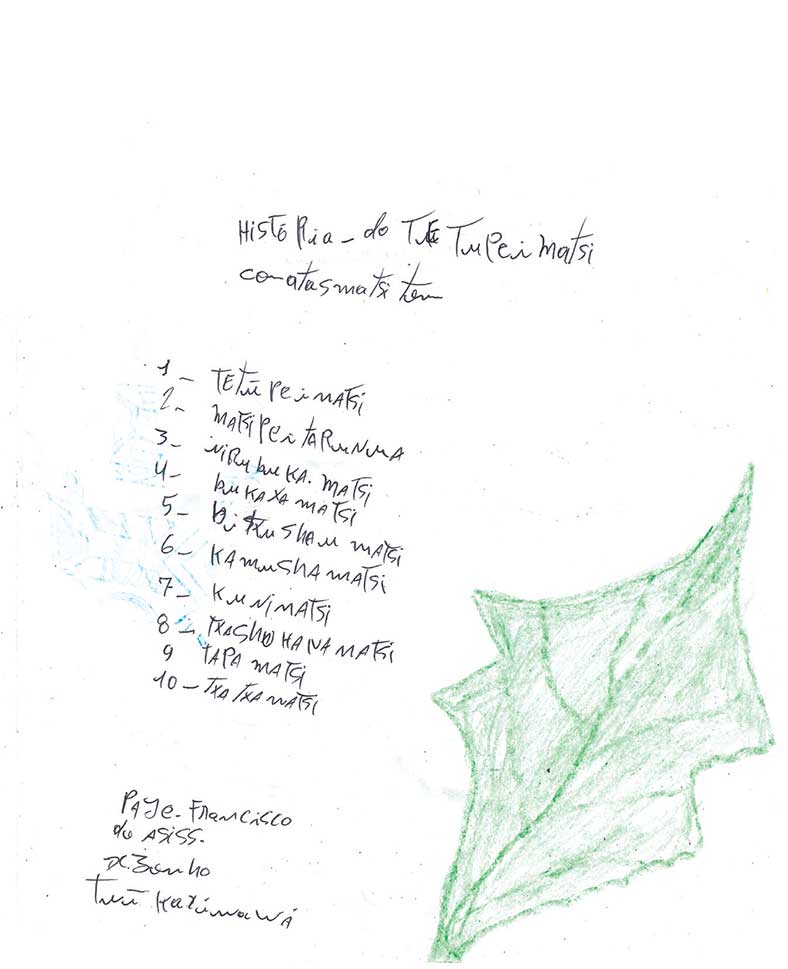 HISTÓRIA - do TETUPEi MATSi
coNATAS matsi tem
1 - TETŨ PEi MATSi
2 - MATSi PEi TARUNUA
3 - NiRU buKA. MATSi
4 - buKAXA MATSi
5 - MATSi
6 - KAMUSHA MATSi
7 - KUNi MATSi
8 - TXASHO KANA MATSi
9 TAPA MATSi
10 - TXA TXA MATSi
PAJe. FRANCiSCO
do ASiSS.
Tuĩ Kaxinawá